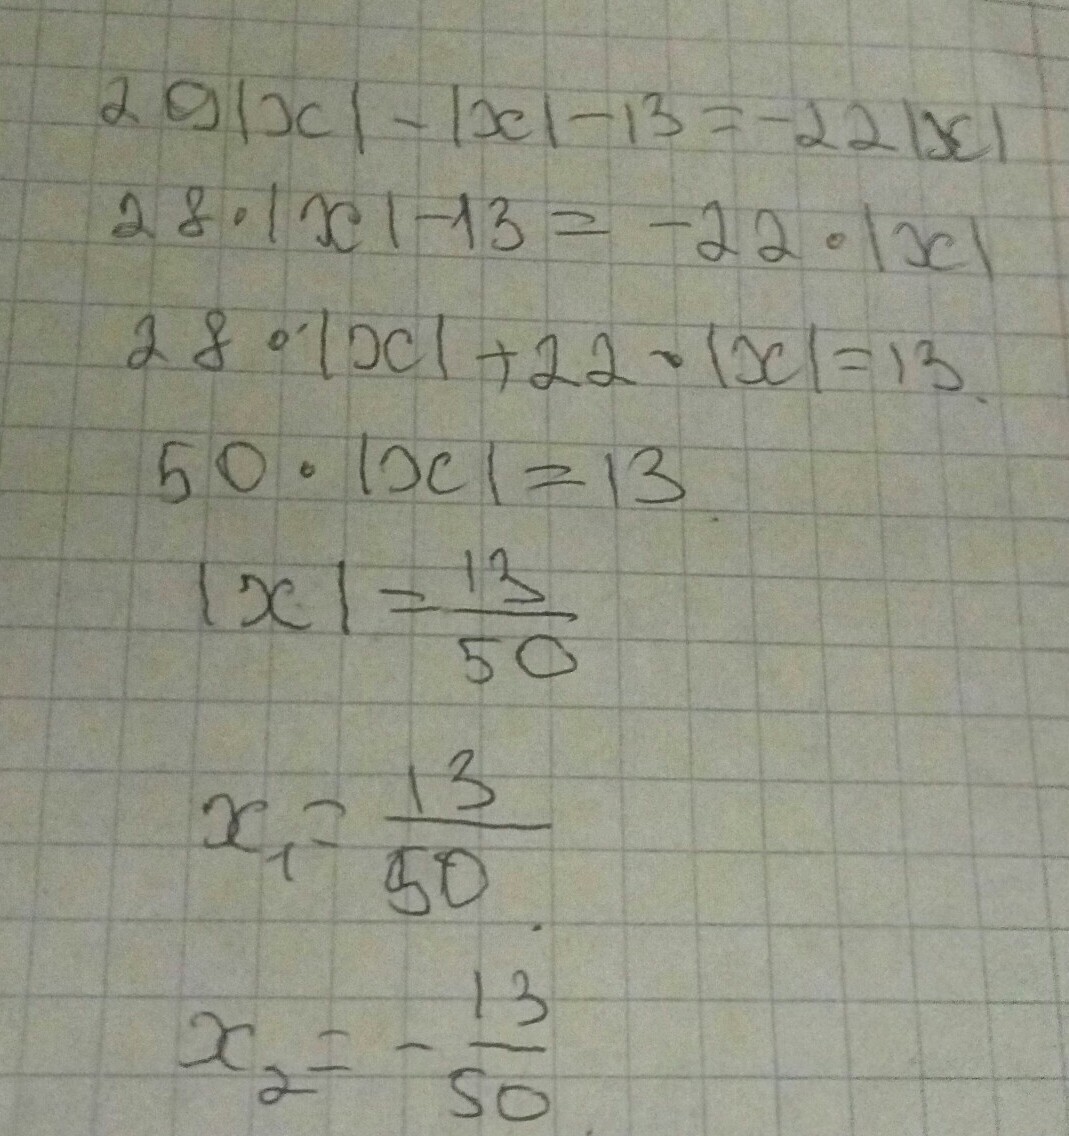 29|x|-|x|-13=-22|x|
28·|x|-13=-22·|x|
28·|x|+22·|x|=13.
50·|x|=13
|x|=13/50
x₁=13/50
x₂=-13/50